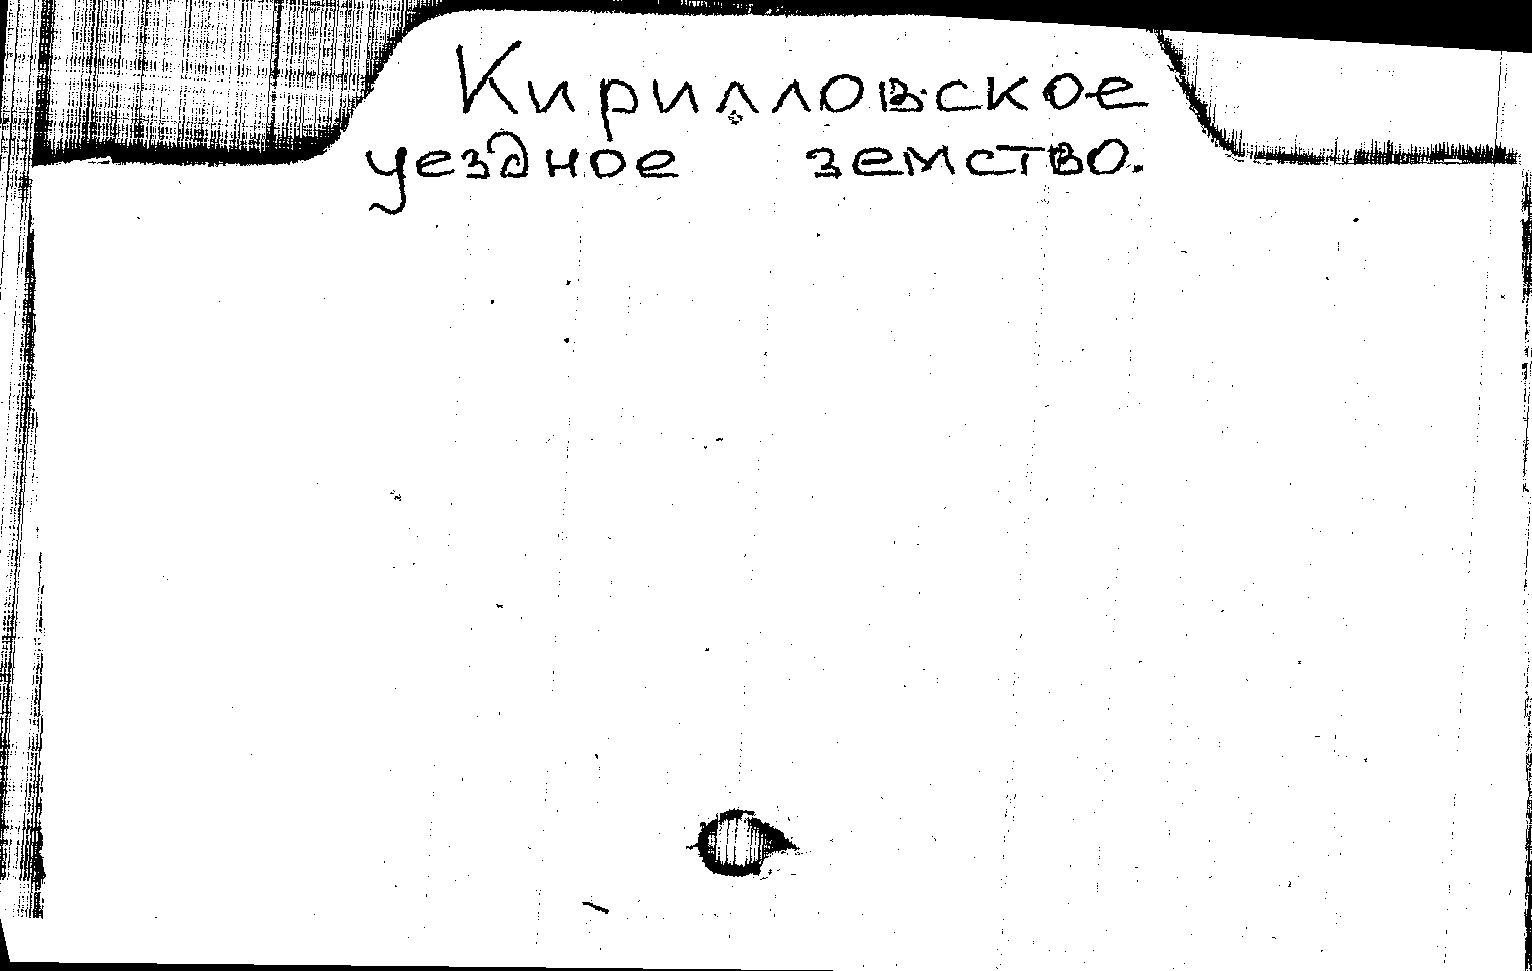 Кирилловское
уездное земство.